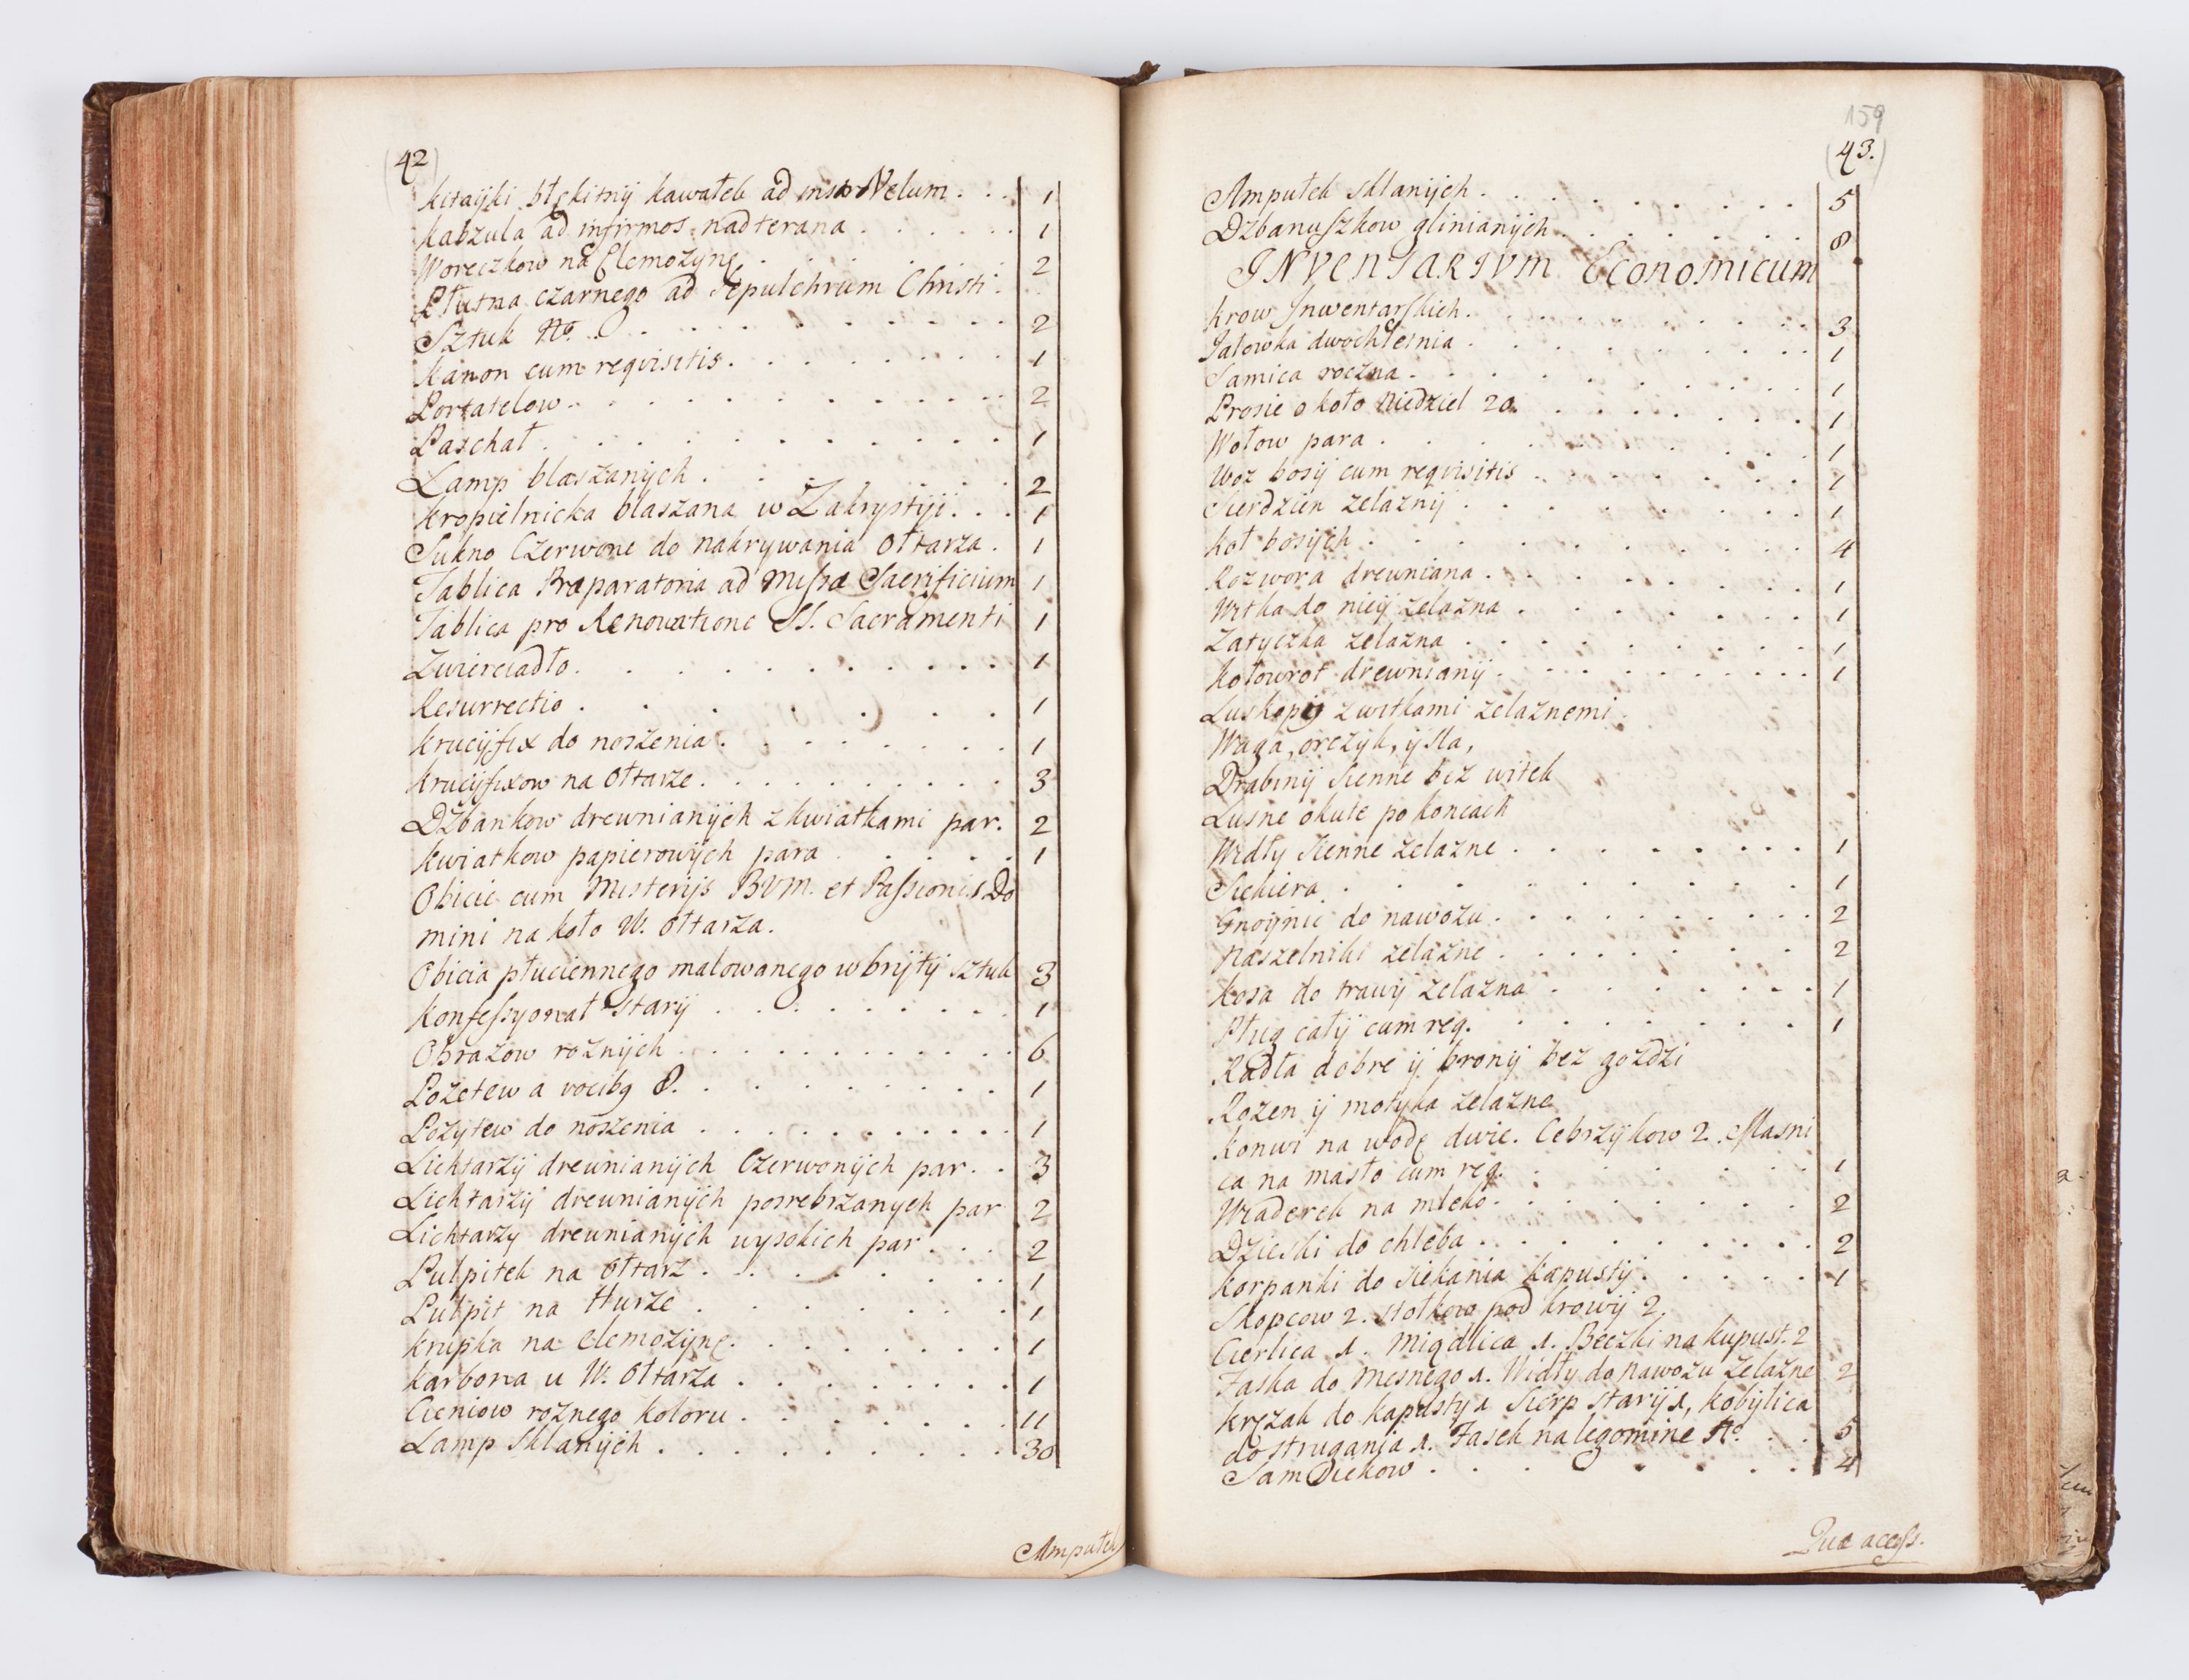 (42)
kitayki błękitnij kawałek ad instar Velum . . . 1
kabzula ad infirmos nadterana . . . 1
Woreczkow na Elemozynę . . . 2
Płutna czarnego ad Sepulchrum Christi
Sztuk No. . . . 2
kanon cum reqvisitis . . . 1
Portatelow . . . 2
Paschał . . . 1
Lamp blaszanÿch . . . 2
kropielnicka blaszana w Zakrystÿi . . . 1
Sukno Czerwone do nakrywania Ołtarza . 1
Tablica Præparatoria ad Missæ Sacrificium 1
Tablica pro Renovatione SS. Sacramenti 1
Zwierciadło . . . 1
Resurrectio . . . 1
krucÿfix do noszenia . . . 1
krucÿfixow na Ołtarze . . . 3
Dżbankow drewnianÿch z kwiatkami par. 2
kwiatkow papierowÿch para . . . 1
Obicie cum Misterÿs BVM. et Passionis Do
mini na koło W. Ołtarza.
Obicia płuciennego malowanego w brÿtÿ sztuk 3
konfessyonał starÿ . . . 1
Obrazow roznÿch . . . 6
Pozetew a vocibg 8. . . . 1
Pozytew do noszenia . . . 1
Lichtarzÿ drewnianÿch Czerwonÿch par . . 3
Lichtarzÿ drewnianÿch posrebrzanych par 2
Lichtarzy drewnianÿch wysokich par . . . 2
Pulpitek na Ołtarz . . . 1
Pulpit na Hurze . . . 1
krupka na elemozynę . . . 1
karbona u W. Ołtarza . . . 1
Cieniow roznego koloru . . . 11
Lamp sklanÿch . . . 30
Ampułek
159
(43.)
Ampułek sklanÿch . . . 5
Dzbanuszkow glinianÿch . . . 8
INVENTARIVM Economicum
krow Inwentarskich . . . 3
Jałowka dwochletnia . . . 1
Samica roczna . . . 1
Prosie około Niedziel 20 . . . 1
Wołow para . . . 1
Woz bosÿ cum reqvisitis . . . 1
Sierdzien zelaznÿ . . . 1
koł bosÿch . . . 4
Rozwora drewniana . . . 1
Witka do nieÿ zelazna . . . 1
Zatyczka zelazna . . . 1
kołowrot drewnianÿ . . . 1
Luskopiÿ z witkami zelaznemi .
Waga, orczyk, ÿ sla,
Drabinÿ Sienne bez witek
Lusne okute po koncach
Widły Sienne zelazne . . . 1
Siekiera . . . 1
Gnoÿnic do nawozu . . . 2
Naszelniki zelazne . . . 2
kosa do trawÿ zelazna . . . 1
Pług całÿ cum req. . . . 1
Radła dobre ÿ bronÿ bez gozdzi
Rozen ÿ motyka zelazne
konwi na wodę dwie. Cebrzÿkow 2. Masni
ca na masło cum req. . . . 1
Wiaderek na mleko . . . 2
Dzieski do chleba . . . 2
korpanki do siekania kapustÿ . . . 1
Skopcow 2. stołkow pod krowÿ 2.
Cierlica 1. Miądlica 1. Beczki na kupust. 2
Faska do Mesnego 1. Widły do nawozu zelazne 2
kręzak do kapusty 1 Sierp starÿ 1, kobÿlica
do strugania 1. Fasek na legomine No. . . 5
Samdiekow . . . 4
Quæ access.